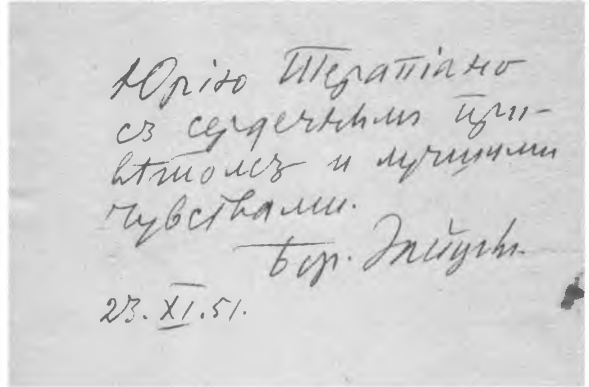 Юрію Терапіано
съ сердечнымъ при-
вѣтомъ и лучшими
чувствами.
Бор. Зайцевъ.
23.XI.51.